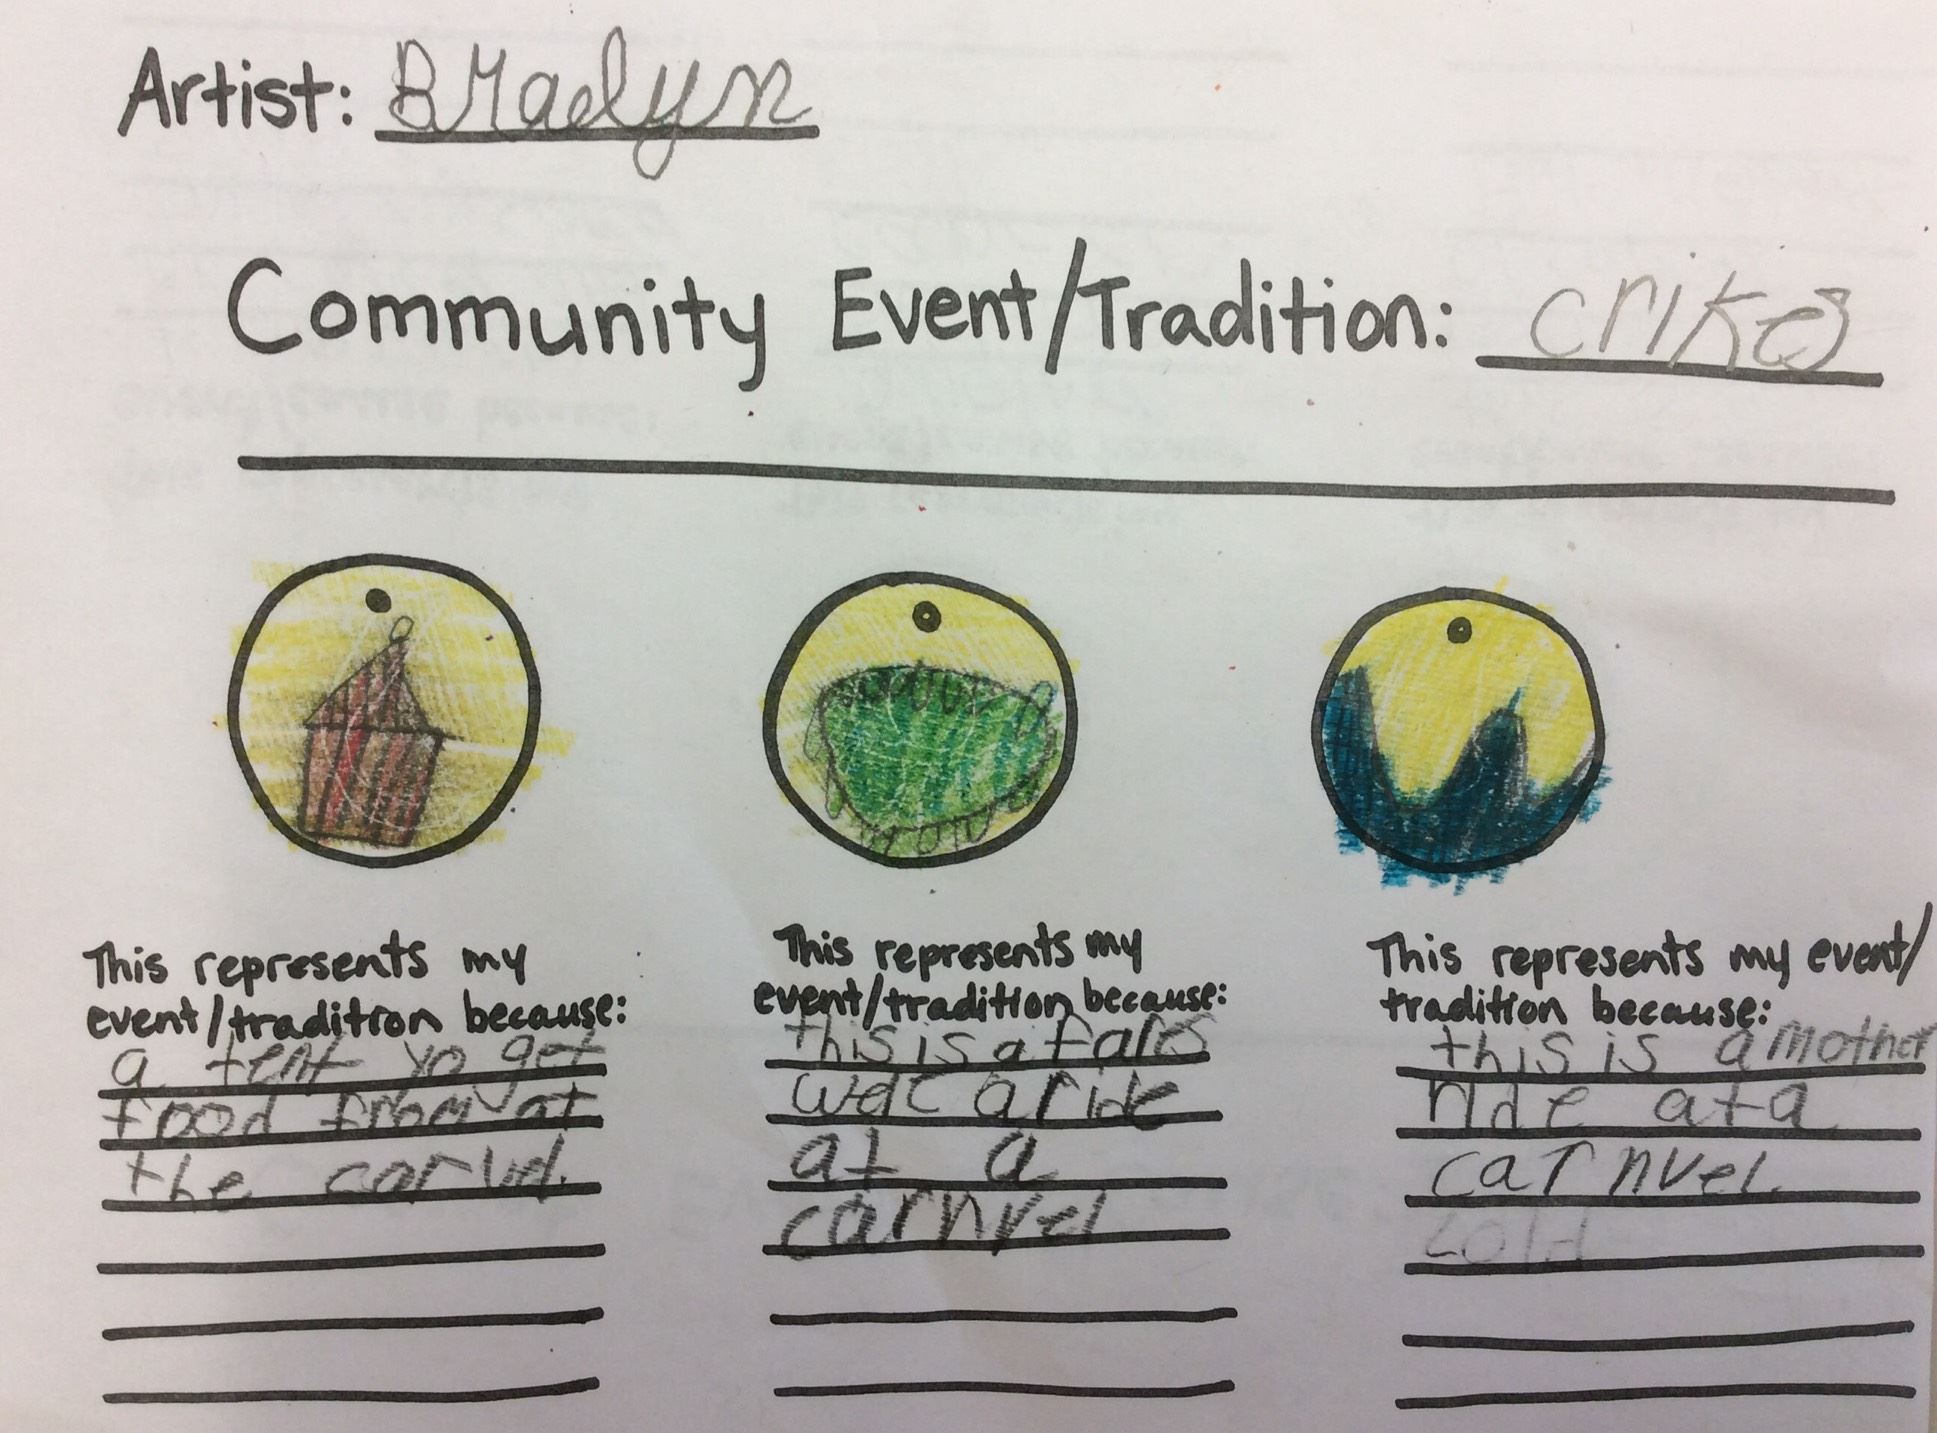 Artist: Bradlyn
Community Event/Tradition: crikes
This represents my
event/tradition because:
a tent yo get
food from at
the carvel.
This represents my
event/tradition because:
this is a fares
a ride
at a
carnvel
This represents my event/
tradition because:
this is amother
ride at a
carnvel.